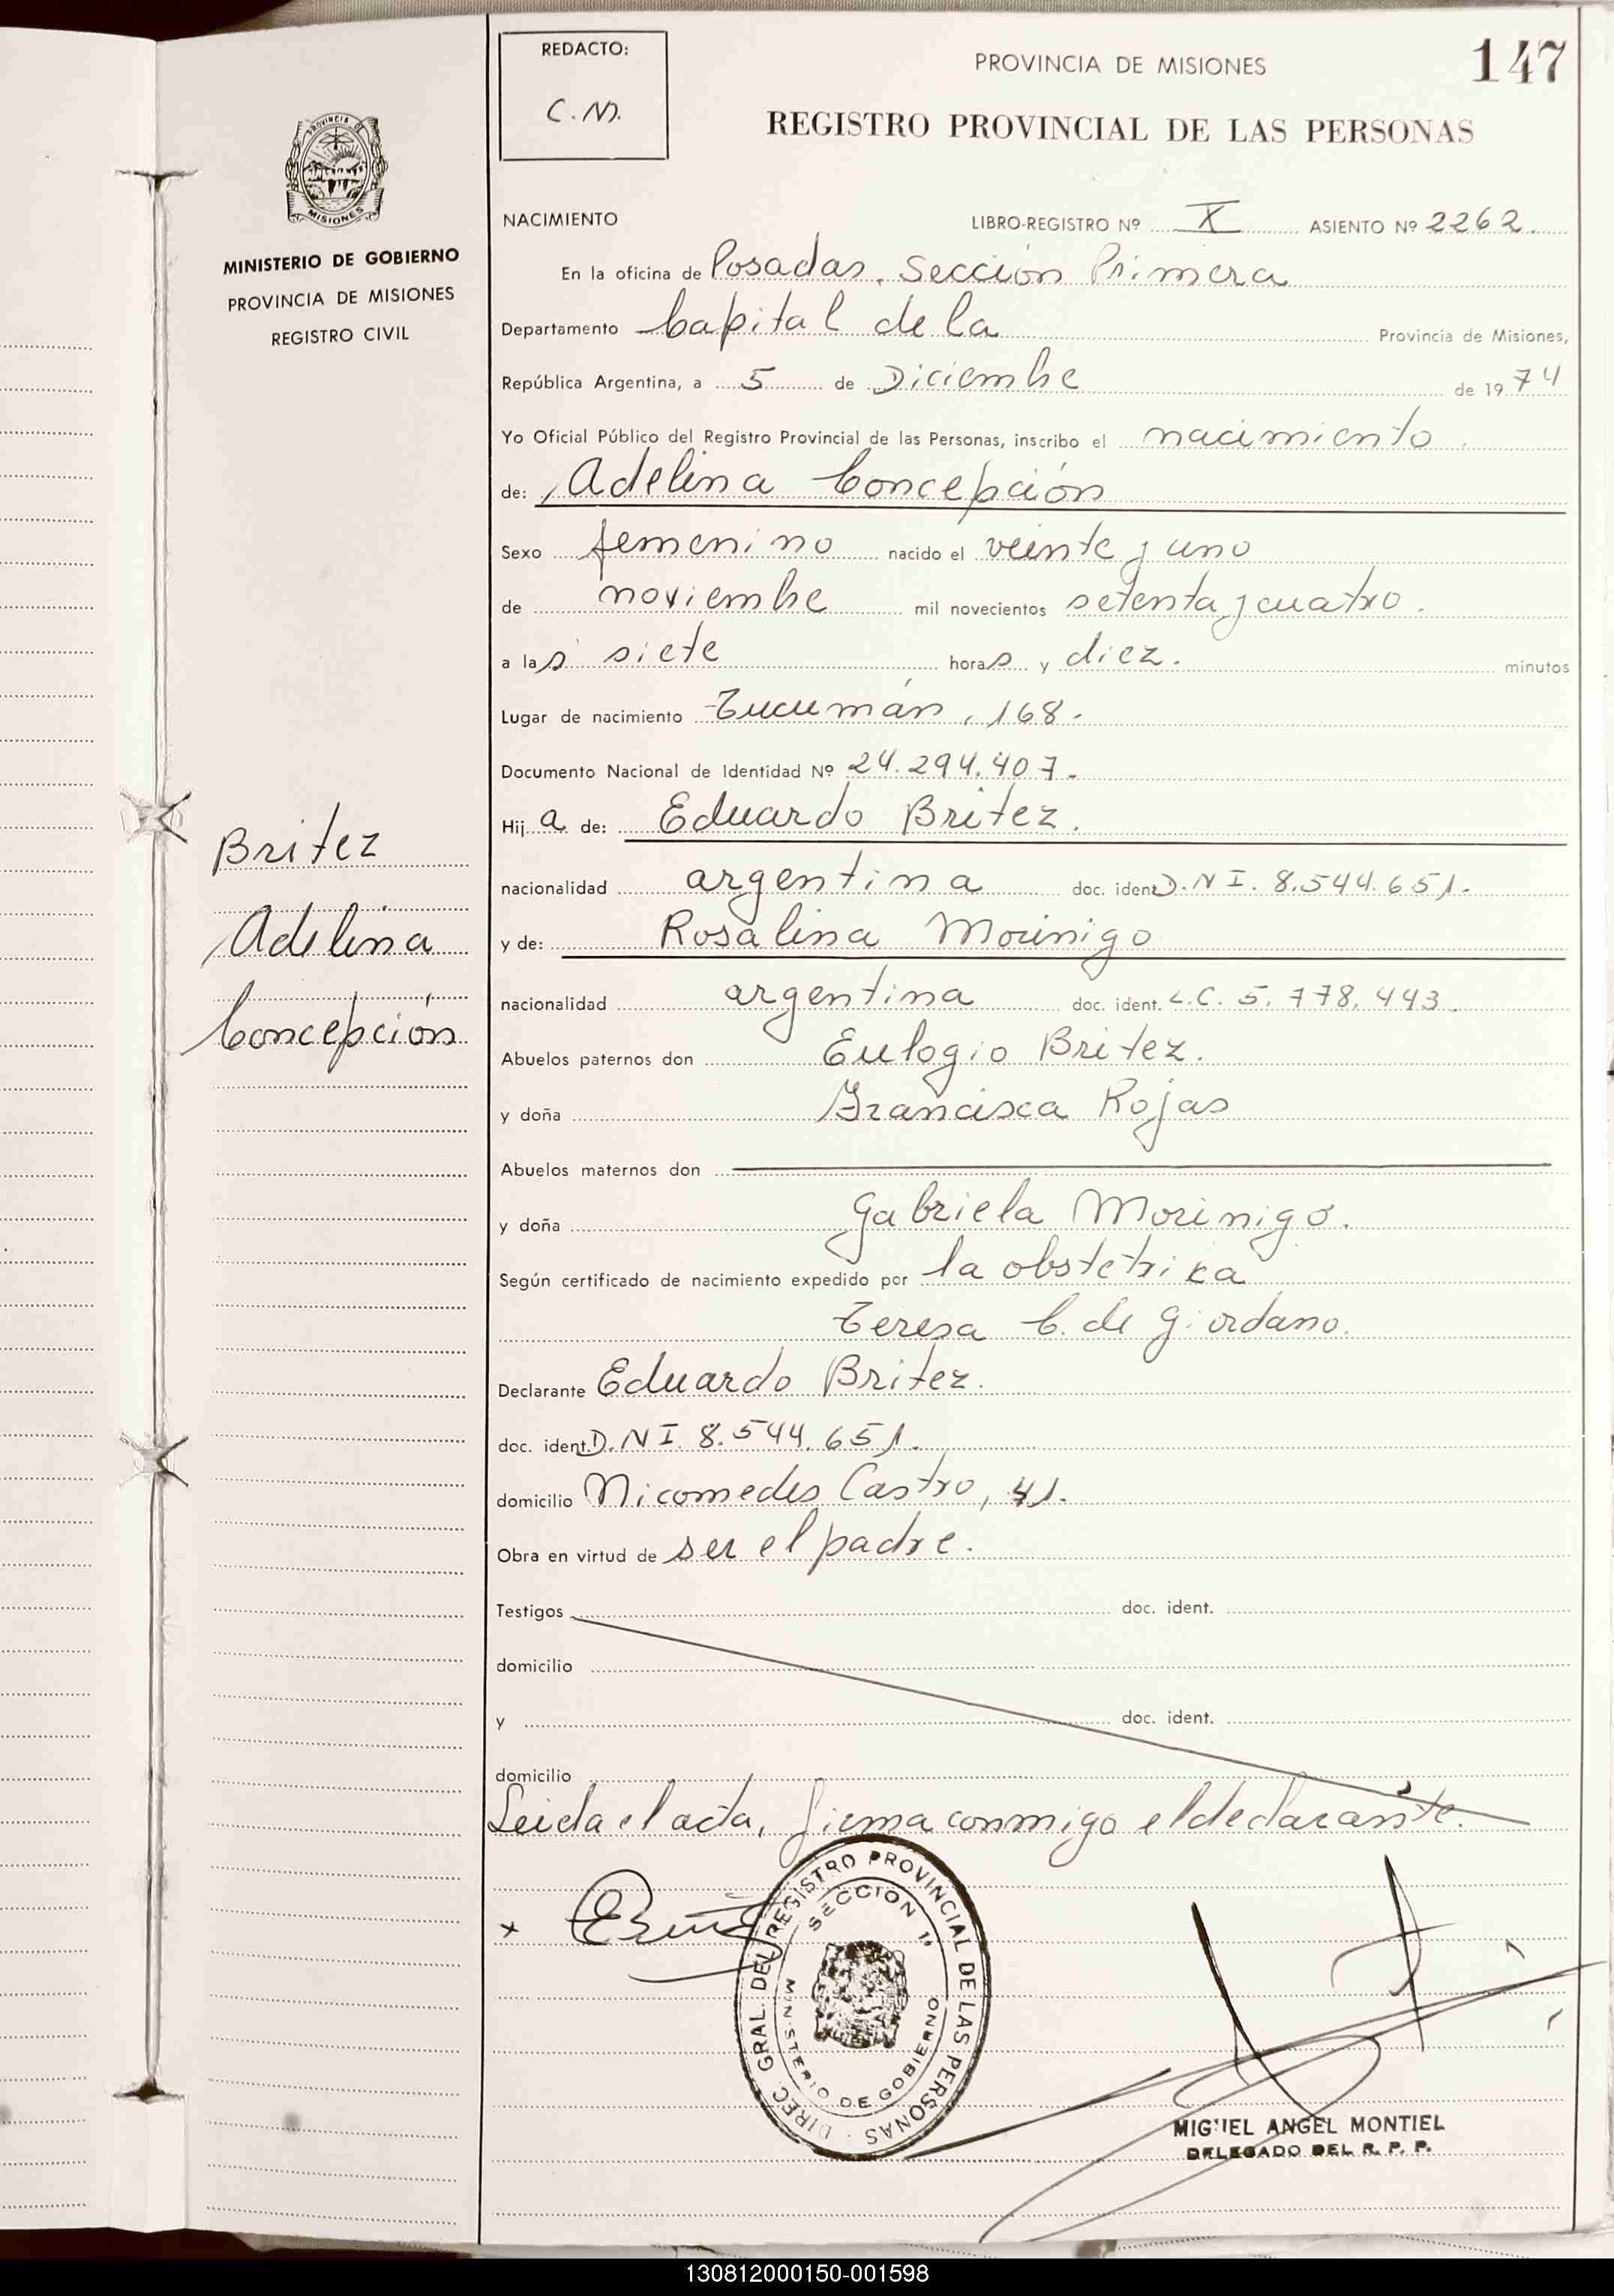 REDACTO:
C. N.
PROVINCIA DE MISIONES
147
REGISTRO PROVINCIAL DE LAS PERSONAS
PROVINCIA DE
MISIONES
MINISTERIO DE GOBIERNO
PROVINCIA DE MISIONES
REGISTRO CIVIL
NACIMIENTO LIBRO-REGISTRO Nº X ASIENTO Nº 2262.
En la oficina de Posadas, Sección Primera
Departamento Capital de la Provincia de Misiones,
República Argentina, a 5 de Diciembre de 1974
Yo Oficial Público del Registro Provincial de las Personas, inscribo el nacimiento.
de: Adelina Concepción
Sexo femenino nacido el veinte y uno
de noviembre mil novecientos setenta y cuatro.
a las siete horas y diez. minutos
Lugar de nacimiento Tucumán, 168.
Documento Nacional de Identidad Nº 24.294.407.
Hija de: Eduardo Britez.
nacionalidad argentina doc. ident. D.N I. 8.544.651.
y de: Rosalina Morinigo
nacionalidad argentina doc. ident. L.C. 5.778.443.
Abuelos paternos don Eulogio Britez.
y doña Francisca Rojas
Abuelos maternos don
y doña Gabriela Morinigo.
Según certificado de nacimiento expedido por la obstetrica
Teresa C. de Giordano.
Declarante Eduardo Britez.
doc. ident. D.N I. 8.544.651.
domicilio Nicomedes Castro, 41.
Obra en virtud de ser el padre.
Testigos doc. ident.
domicilio
y doc. ident.
domicilio
Leida el acta, firma conmigo el declarante.
Britez
Adelina
Concepción
x
DIREC. GRAL. DEL REGISTRO PROVINCIAL DE LAS PERSONAS
SECCION 1ª
MINISTERIO DE GOBIERNO
MIGUEL ANGEL MONTIEL
DELEGADO DEL R. P. P.
130812000150-001598